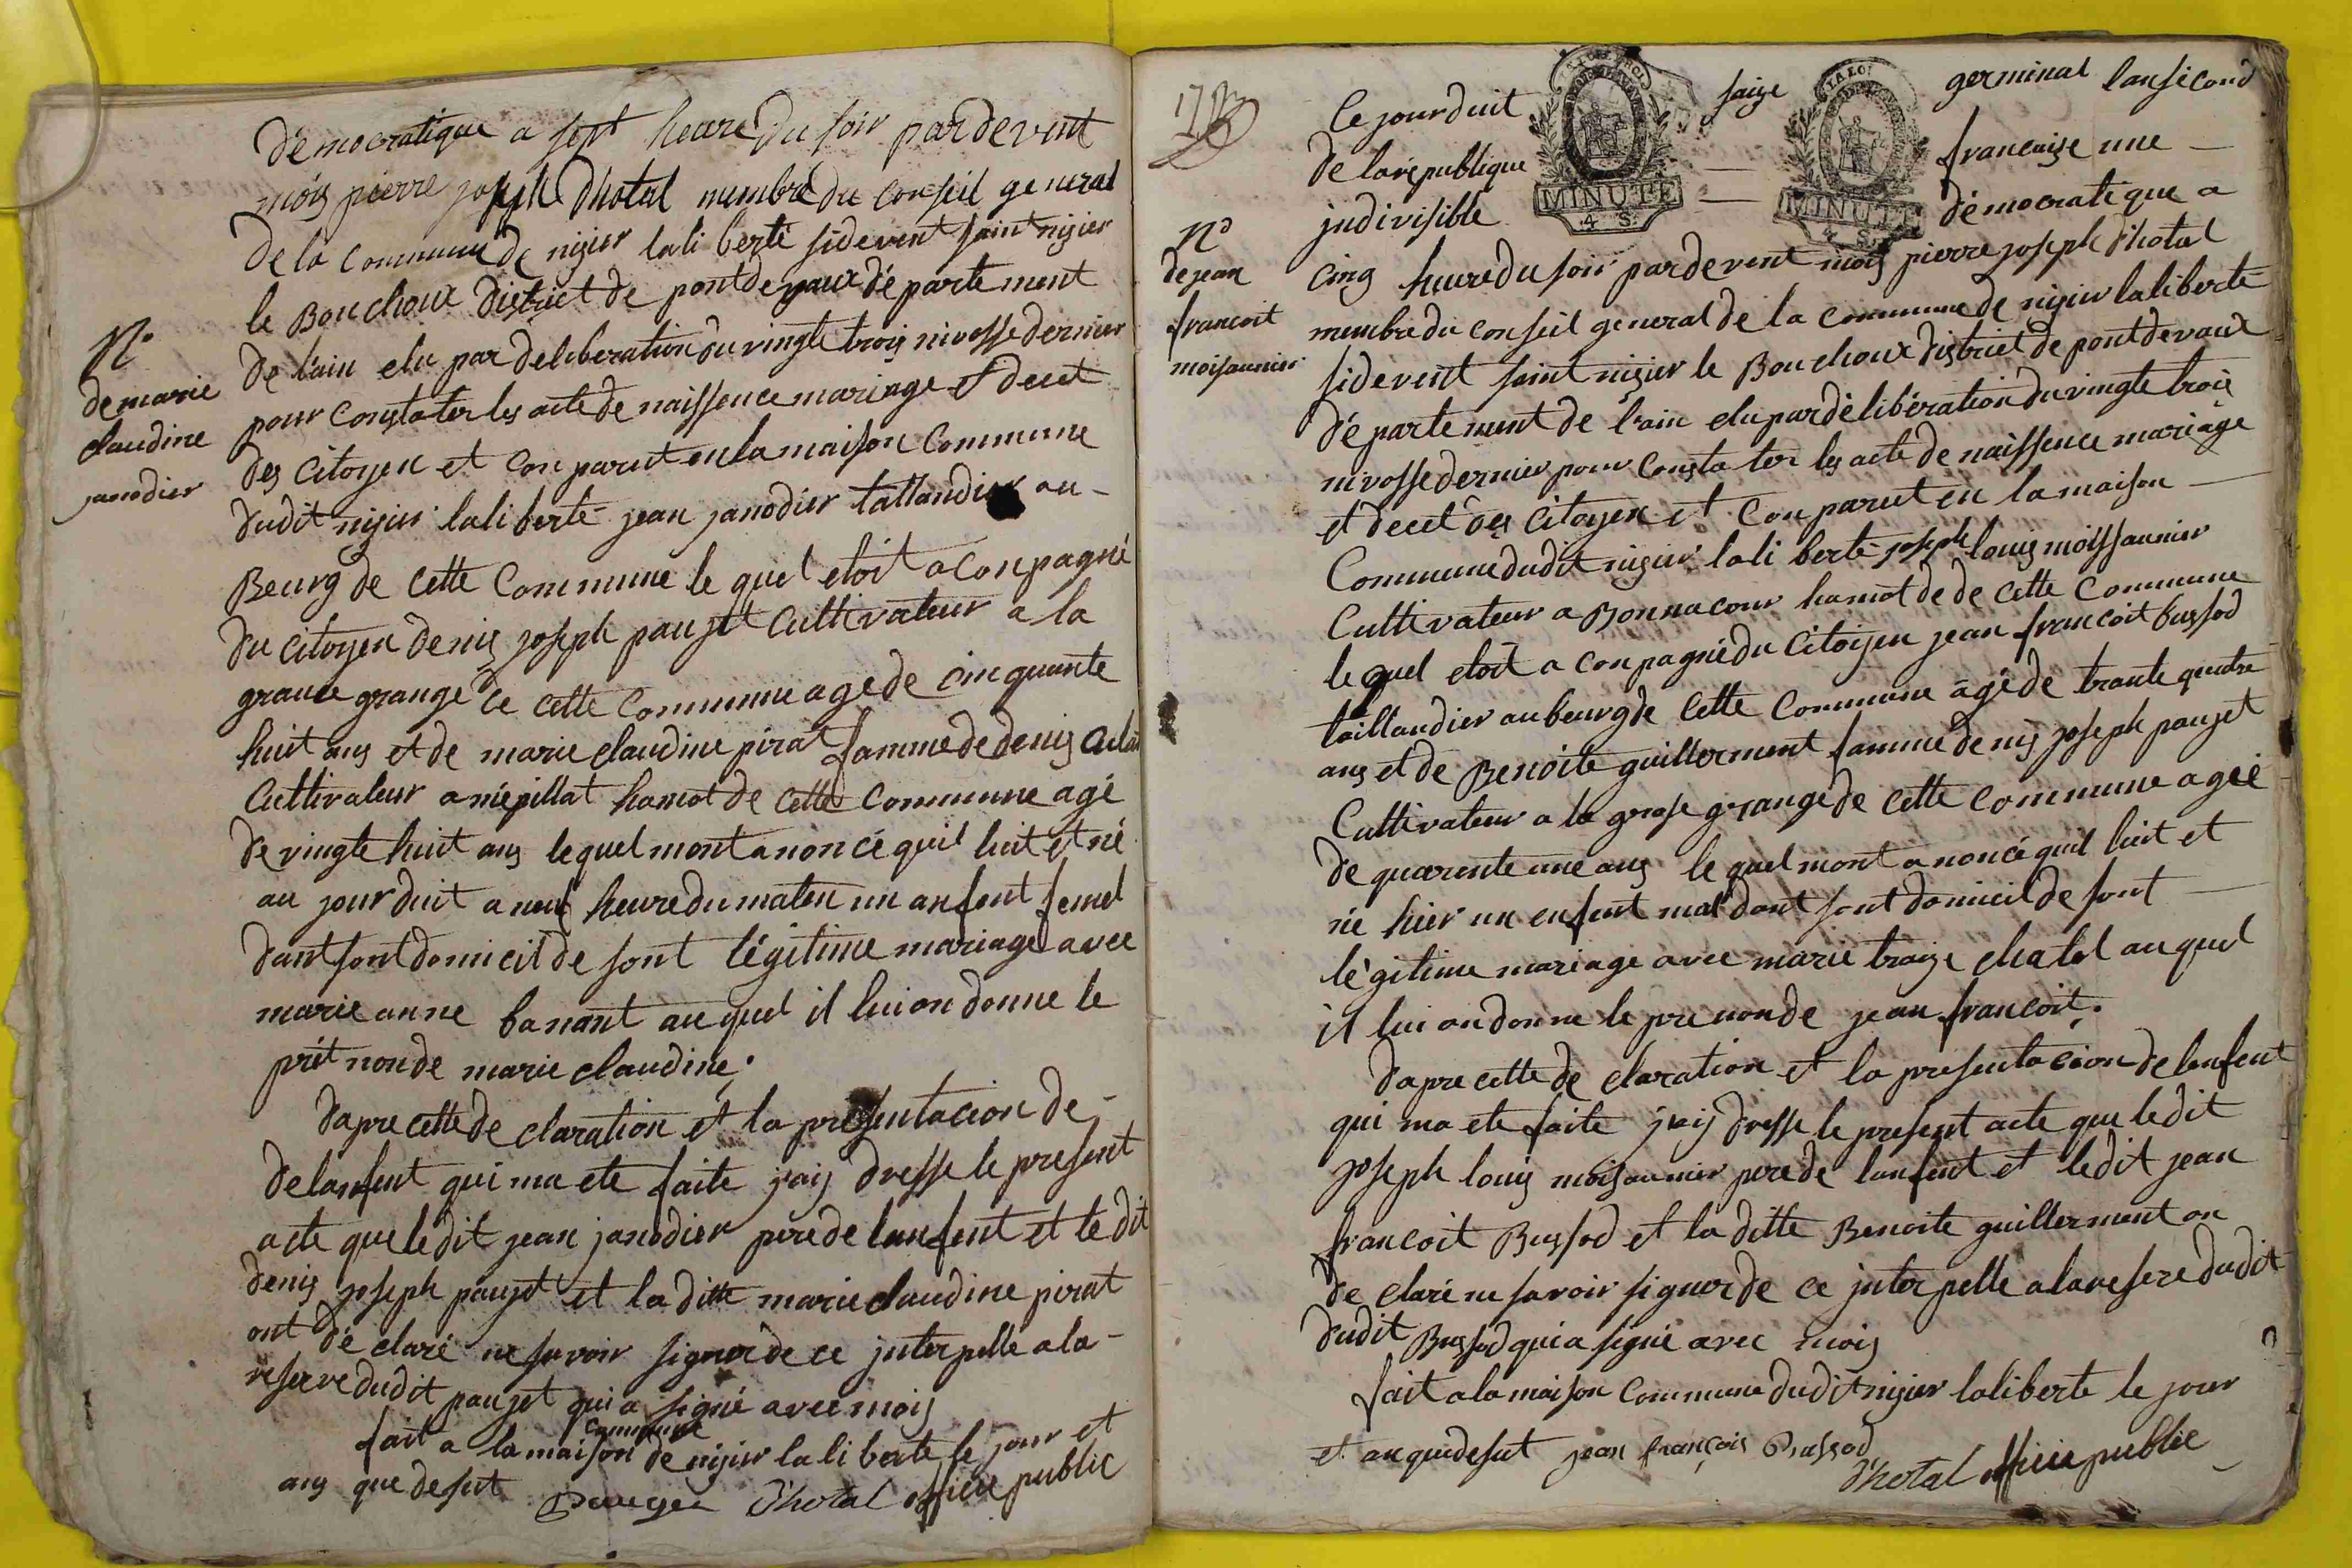 démocratique a sept heure du soir pardevent
mois pierre joseph Dhotal membre du conseil general
de la commune de nizier laliberté sidevent saint nizier
le Bouchoux district de pontdevaux département
de l'ain elu par deliberation du vingte trois nivosse dernier
pour constater les acte de naissence mariage et decet
des citoyen et con parut en la maison commune
dudit nizier laliberté jean janodier tallandier au -
Beurg de cette commune le quel etoit aconpagné
du citoyen denis joseph paujet cultivateur a la
grause grange de cette commune agé de cinquante
huit ans et de marie claudine pirat famme de denis
cultivateur a népillat hamot de cette commune agé
de vingte huit ans lequel mont anoncé quil luit et né
au jourduit a neuf heure du maten un anfent femel
dant sont domicil de sont légitime mariage avec
marie anne banant auquel il luion donne le
prét non de marie claudine .
dapre cette de claration et la presentacion de -
de lanfent qui ma ete faite jaij dresse le present
acte que ledit jean janodier pere de lanfent et le dit
denis joseph paujet et la ditte marie claudine pirat
ont dé claré ne savoir signer de ce juterpelle a la -
reserve dudit paujet qui a signé avec mois
commune
fait a la maison de nizier laliberte le jour et
ans que desut Dhotal officie public
N°
de marie
claudine
janodier
Ce jourduit saize germinal lan second
de larépublique francaise une -
jndivisible démocratique a
MINUTE
4 S.
MINUTE
4 S.
N°
de jean
francoit
moisaunier
cinq heure du soir pardevent mois pierre joseph Dhotal
membre du conseil general de la commune de nizier laliberté
sidevent saint nizier le Bouchoux district de pontdevaux
département de l'ain elu par délibération du vingte trois
nivosse dernier pour constater les acte de naissence mariage
et decet des citoyen et con parut en la maison -
Commune dudit nizier laliberté joseph louis moissaunier
Cultivateur a Bonnacour hamot de de cette Commune
le quel etoit a conpagné du Citoijen jean francoit bussod
taillandier au beurg de cette Commune âgé de trante quatre
ans et de Benoite guillerment famme denis joseph paujet
Cultivateur a la grose grange de cette commune ageé
de quarente une ans le quel mont anoncé quil luit et
né hier un enfent mal dant sont domicil de sont -
légitime mariage avec marie traize chatel au quel
il lui on donne le prenon de jean francoit .
dapre cette de claration et la presentacion de lenfent
qui ma ete faite jaij dresse le present acte que le dit
joseph louis moisaunier pere de lanfent et ledit jean
francoit Bussod et la ditte Benoite guillerment on
de claré ne savoir signer de ce juterpelle alaresere dudit
dudit Bussod qui a signé avec mois
fait a la maison commune dudit nizier laliberte le jour
et an que desut jean françois Bussod
Dhotal officie public